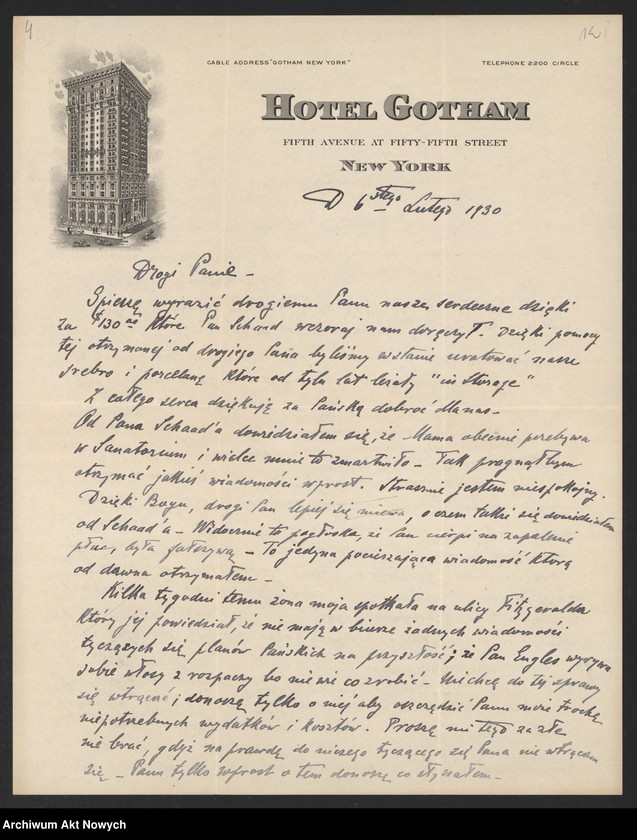 4
CABLE ADDRESS "GOTHAM NEW YORK"
TELEPHONE 2200 CIRCLE
HOTEL GOTHAM
FIFTH AVENUE AT FIFTY-FIFTH STREET
NEW YORK
D 6 stego Lutego 1930
Drogi Panie -
Spieszę wyrazić drogiemu Panu nasze serdeczne dzięki
za $130 00 które Pan Schaad wczoraj nam doręczył. Dzięki pomocy
tej otrzymanej od drogiego Pana byliśmy wstanie uratować nasze
srebro i porcelanę które od tylu lat leżały "in Storage"
Z całego serca dziękuję za Pańską dobroć dla nas -
Od Pana Schaad'a dowiedziałem się, że Mama obecnie przebywa
w Sanatorium i wielce mnie to zmartwiło - Tak pragnąłbym
otrzymać jakieś wiadomości wprost. Strasznie jestem niespokojny.
Dzięki Bogu, drogi Pan lepiej się miewa, o czem także się dowiedziałem
od Schaad'a - Widocznie ta pogłoska, że Pan cierpi na zapalenie
płuc, była fałszywą - To jedyna pocieszająca wiadomość którą
od dawna otrzymałem -
Kilka tygodni temu żona moja spotkała na ulicy Fitzgeralda
który jej powiedział, że nie mają w biurze żadnych wiadomości
tyczących się planów Pańskich na przyszłość; że Pan Engles wyrywa
sobie włosy z rozpaczy bo nie wie co zrobić - Nie chcę do tej sprawy
się wtrącać; donoszę tylko o niej aby oszczędzić Panu może trochę
niepotrzebnych wydatków i kosztów. Proszę mi tego za złe
nie brać, gdyż na prawdę do niczego tyczącego się Pana nie wtrącam
się - Panu tylko wprost o tem donoszę co słyszałem -
Archiwum Akt Nowych